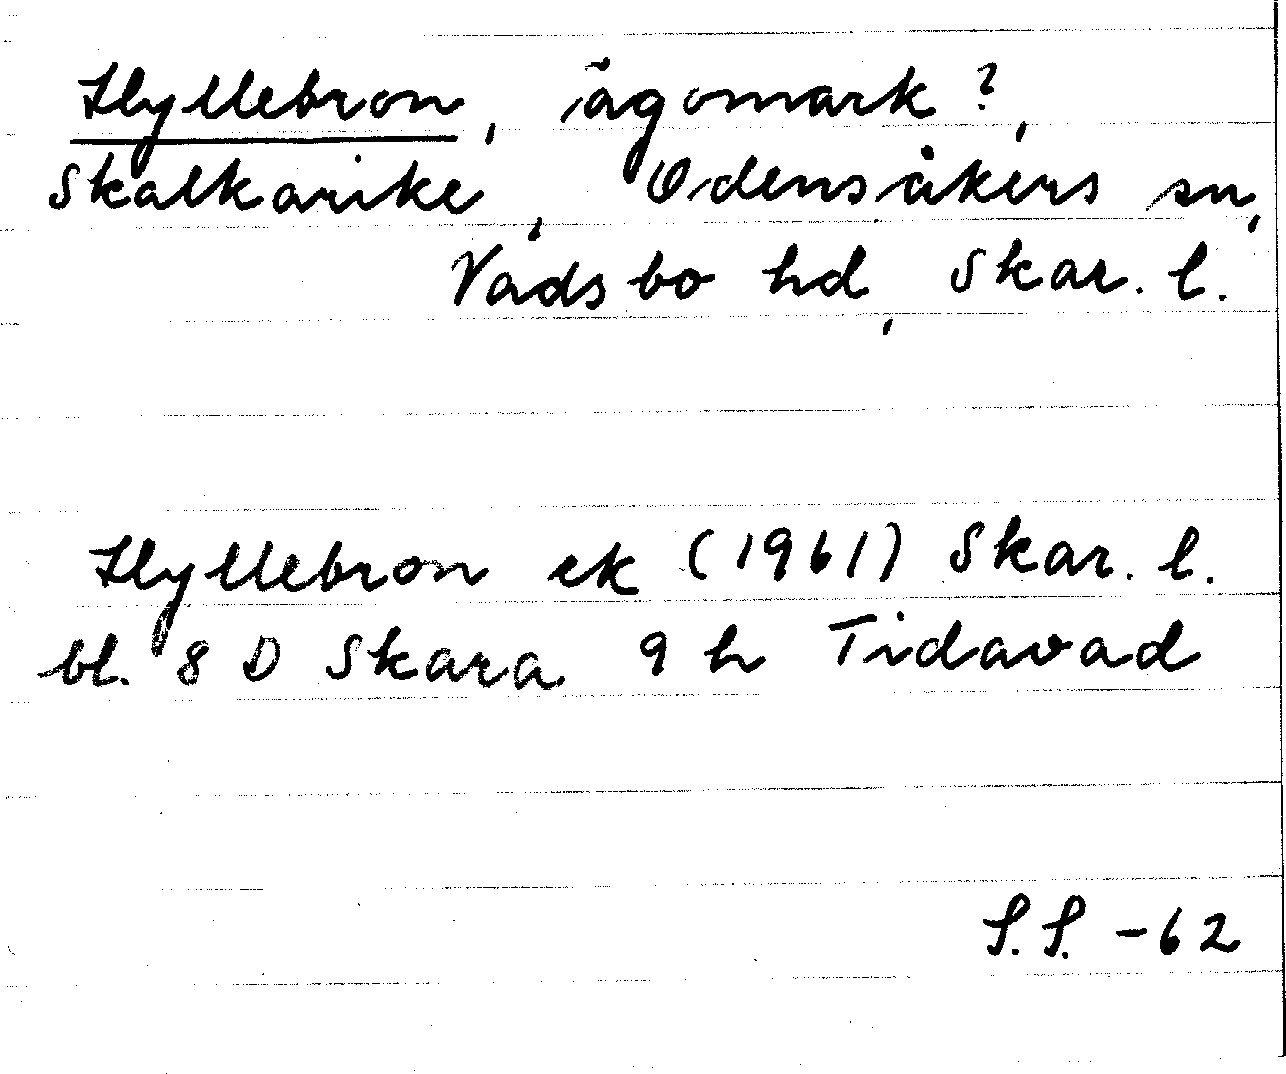 Hyllebron, ägomark?,
Skalkarike, Odensåkers sn,
Vadsbo hd, Skar. l.
Hyllebron ek (1961) Skar. l.
bl. 8 D Skara 9 h Tidavad
S.S. -62